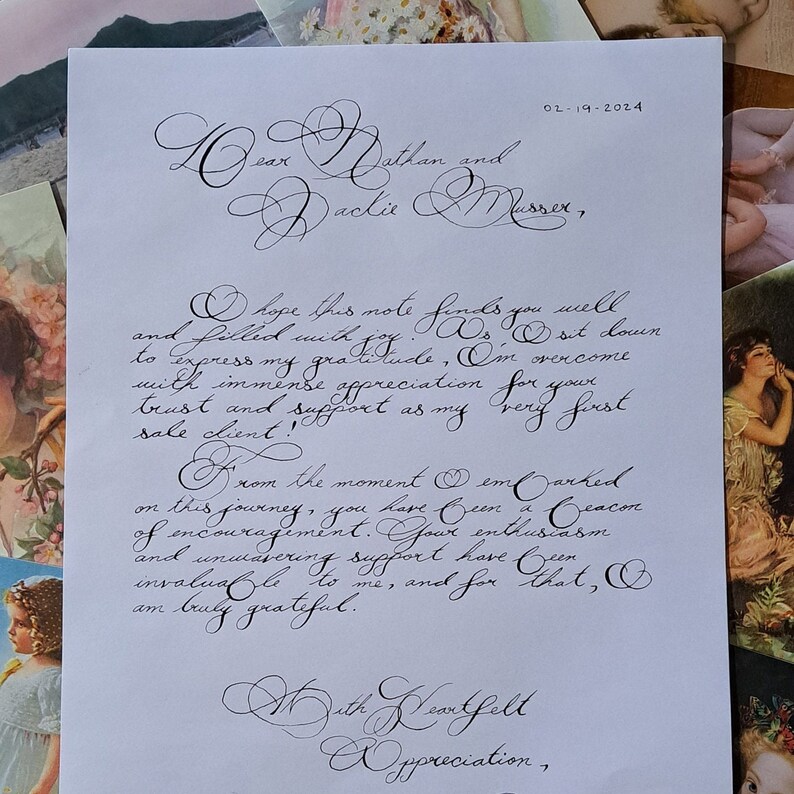 02-19-2024
Dear Nathan and
Jackie Musser,
I hope this note finds you well
and filled with joy. As I sit down
to express my gratitude, I'm overcome
with immense appreciation for your
trust and support as my very first
sale client!
From the moment I embarked
on this journey, you have been a beacon
of encouragement. Your enthusiasm
and unwavering support have been
invaluable to me, and for that, I
am truly grateful.
With Heartfelt
Appreciation,